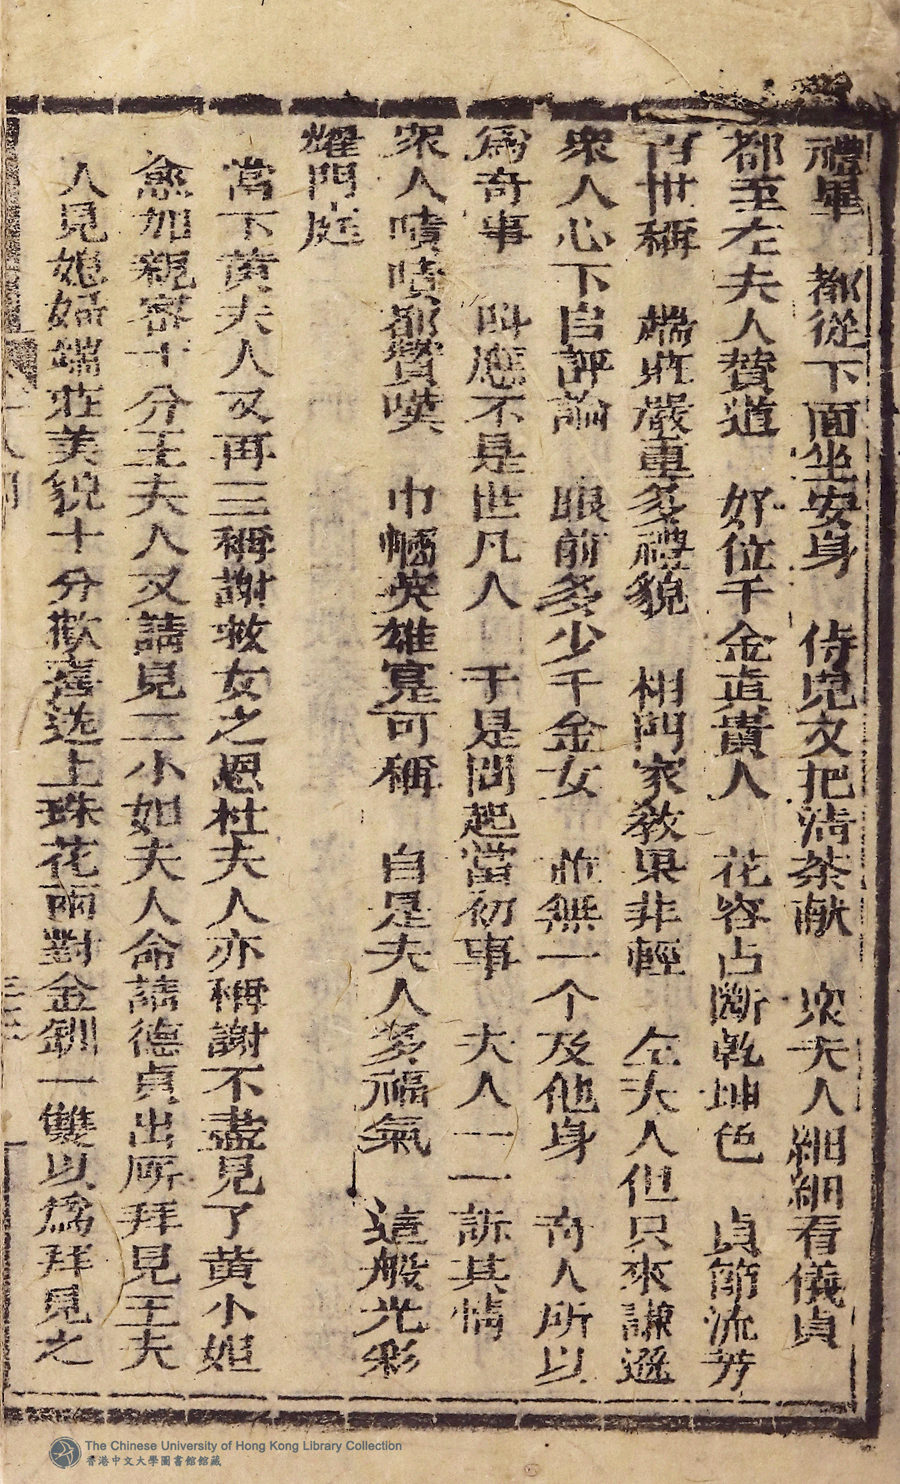 禮畢　都從下面坐安身　侍兒又把清茶献　眾夫人細細看儀貞
都至左夫人賛道　好位千金真貴人　花容占斷乾坤色　貞節流芳
百世稱　端莊嚴重多禮貌　相門家教果非輕　左夫人但只來謙遜
衆人心下自評論　眼前多少千金女　並無一个及他身　奇人所以
爲奇事　呌應不是世凡人　于是問起當初事　夫人一一訴其情
衆人嘖嘖都賛嘆　巾幗英雄寔可稱　自是夫人多福氣　這般光彩
耀門庭
當下黄夫人又再三稱謝救女之恩杜夫人亦稱謝不盡見了黄小姐
愈加親密十分王夫人又請見二小如夫人命請德貞出厛拜見王夫
人見他端莊美貌十分歡喜送上珠花兩對金釧一雙以爲拜見之
The Chinese University of Hong Kong Library Collection
香港中文大學圖書館館藏